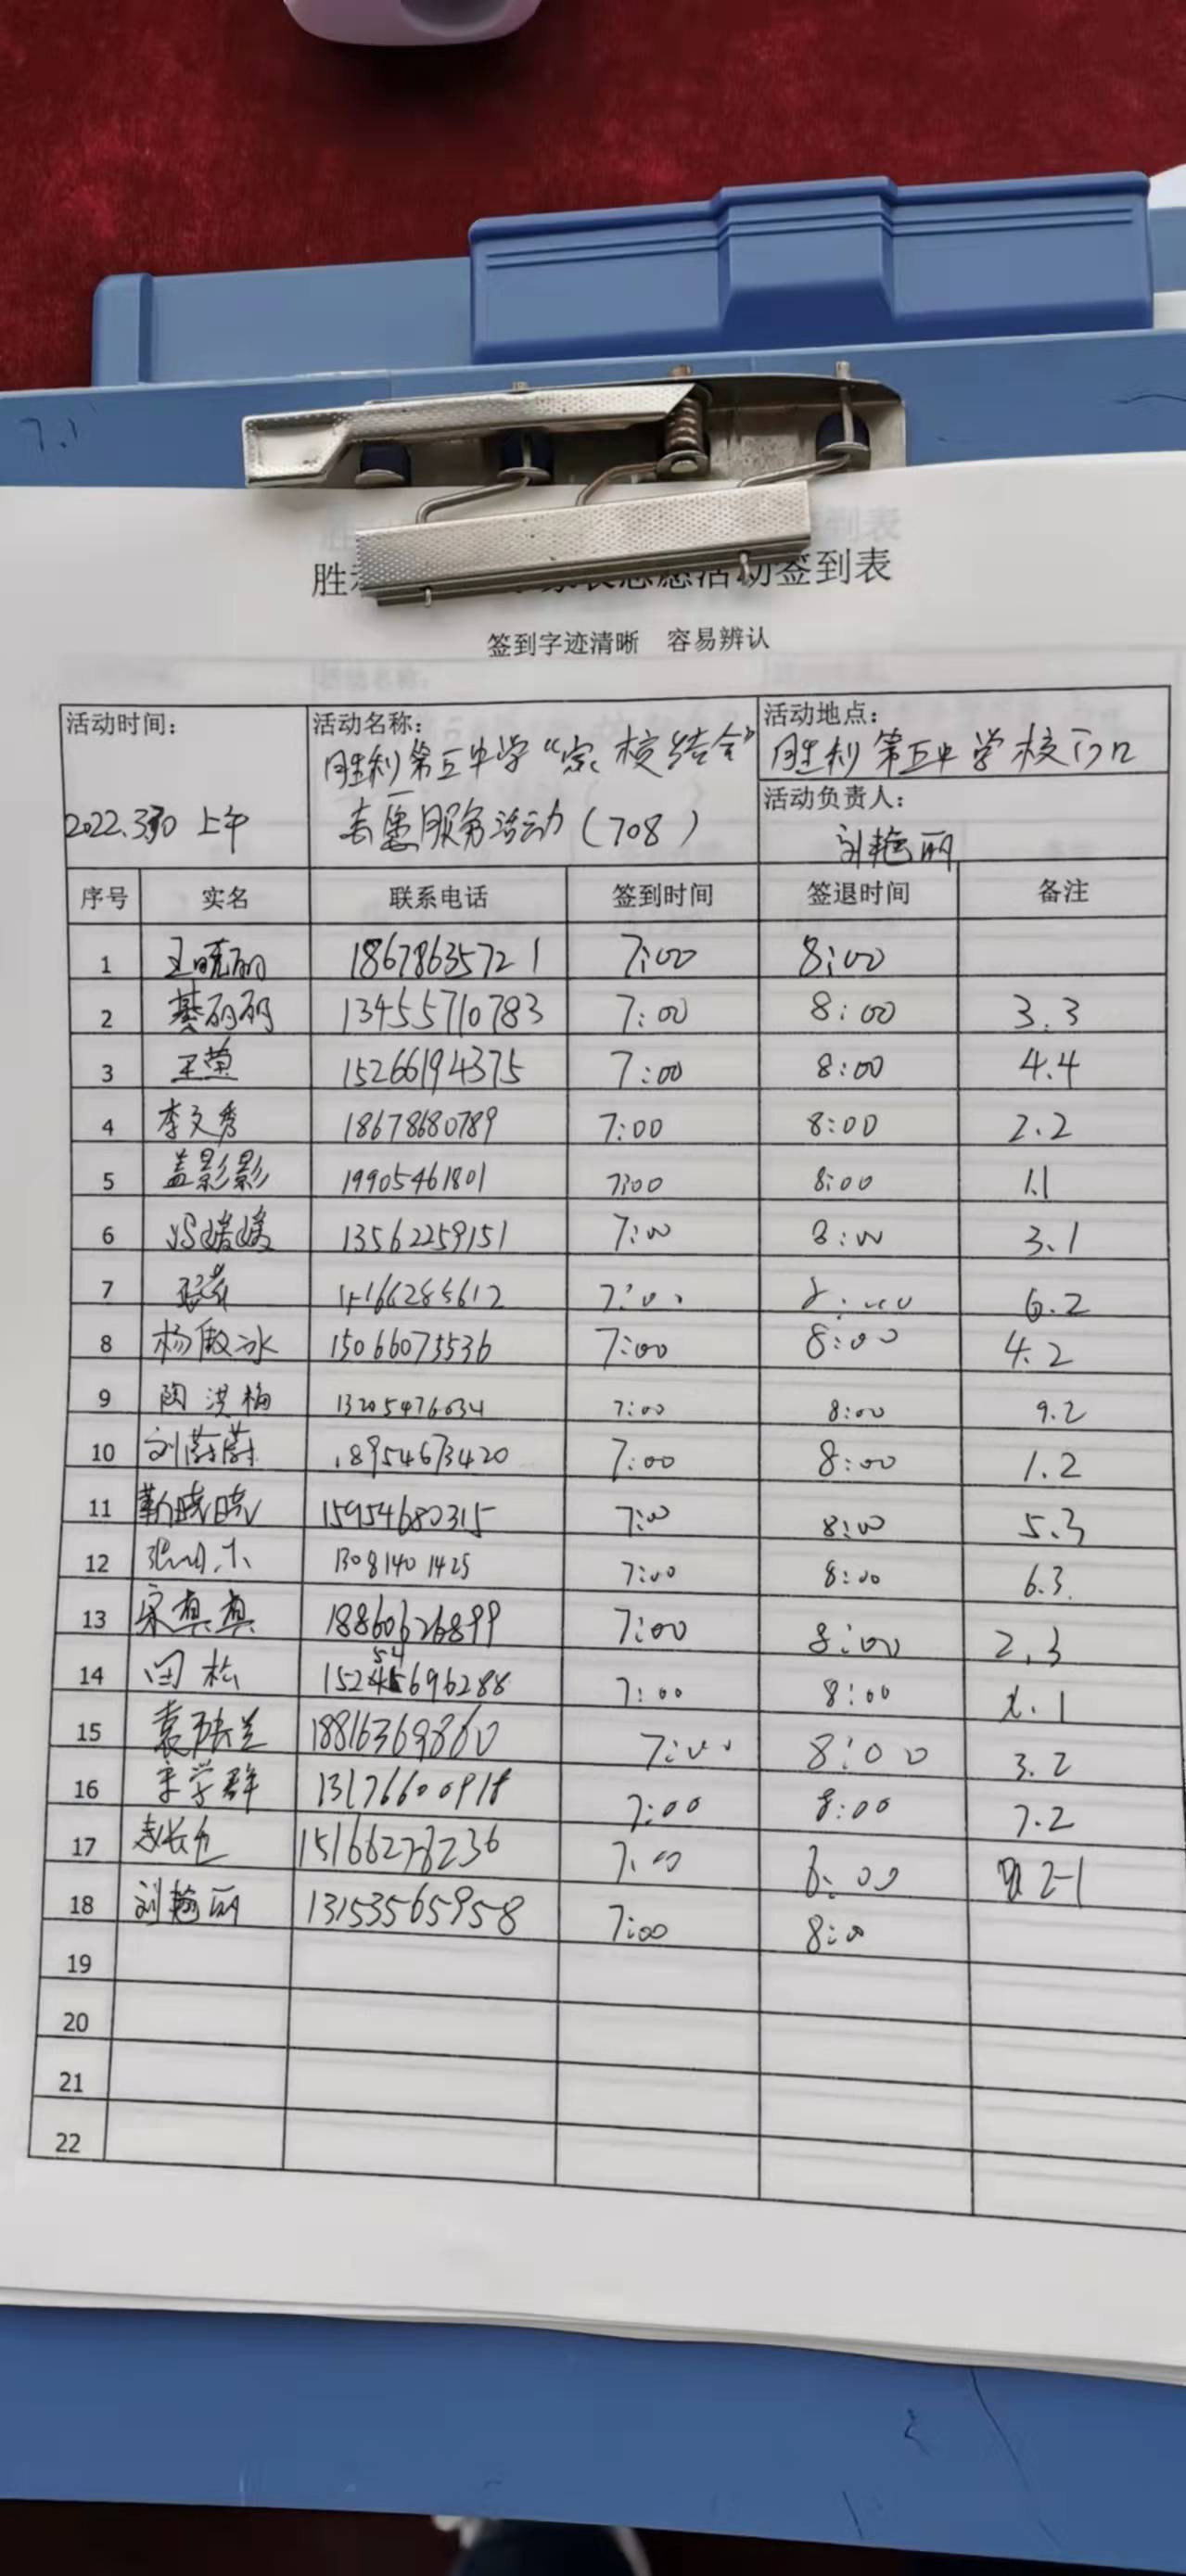 7.1
签到表
签到字迹清晰 容易辨认
活动时间: 活动名称: 活动地点:
胜利第五中学“家校结合” 胜利第五中学校门口
活动负责人:
2022.3.30 上午 志愿服务活动(708) 刘艳丽
序号 实名 联系电话 签到时间 签退时间 备注
1 王晓丽 18678635721 7:00 8:00
2 綦丽丽 13455710783 7:00 8:00 3.3
3 王萍 15266194375 7:00 8:00 4.4
4 李文秀 18678680789 7:00 8:00 2.2
5 盖影影 19905461801 7:00 8:00 1.1
6 冯媛媛 13562259151 7:00 8:00 3.1
7 7:00 8:00 6.2
8 杨傲冰 15066075536 7:00 8:00 4.2
9 陶洪梅 13205476034 7:00 8:00 9.2
10 刘蔚蔚 18954673420 7:00 8:00 1.2
11 靳晓晓 15954680315 7:00 8:00 5.3
12 13081401425 7:00 8:00 6.3.
13 宋真真 18860626899 7:00 8:00 2.3
14 田松 7:00 8:00
15 18816369860 7:00 8:00 3.2
16 李学群 7:00 8:00 7.2
17 15166273236 7:00 8:00 2-1
18 刘艳丽 13153565958 7:00 8:00
19
20
21
22